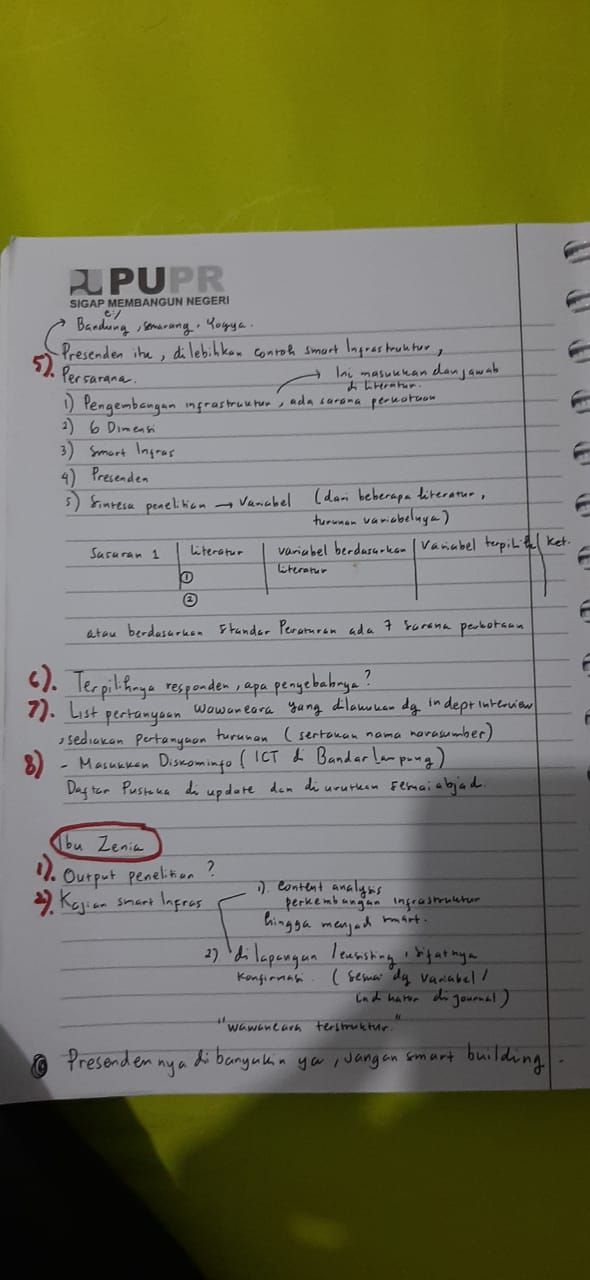 PUPR
SIGAP MEMBANGUN NEGERI
Bandung, Semarang, Yogya.
5). Presenden itu, dilebihkan contoh smart Infrastruktur,
Persarana.
Ini masukkan dan jawab
di literatur.
1) Pengembangan infrastruktur, ada sarana perkotaan
2) 6 Dimensi
3) Smart Infras
4) Presenden
5) Sintesa penelitian → Variabel (dari beberapa literatur,
turunan variabelnya)
Sasaran 1 | Literatur | Variabel berdasarkan Literatur | Variabel terpilih | Ket.
①
②
atau berdasarkan Standar Peraturan ada 7 Sarana perkotaan
6). Terpilihnya responden, apa penyebabnya?
7). List pertanyaan wawancara yang dilakukan dg indept interview
, sediakan pertanyaan turunan (sertakan nama narasumber)
8) - Masukkan Diskominfo (ICT di Bandar Lampung)
Daftar Pustaka di update dan di urutkan sesuai abjad.
Ibu Zenia
1). Output penelitian?
2). Kajian smart Infras
1). Content analysis
perkembangan infrastruktur
hingga menjadi smart.
2) di lapangan / eksisting, sifatnya
konfirmasi. (sesuai dg variabel /
indikator di journal)
"wawancara terstruktur."
Presendennya dibanyakin ya, jangan smart building.